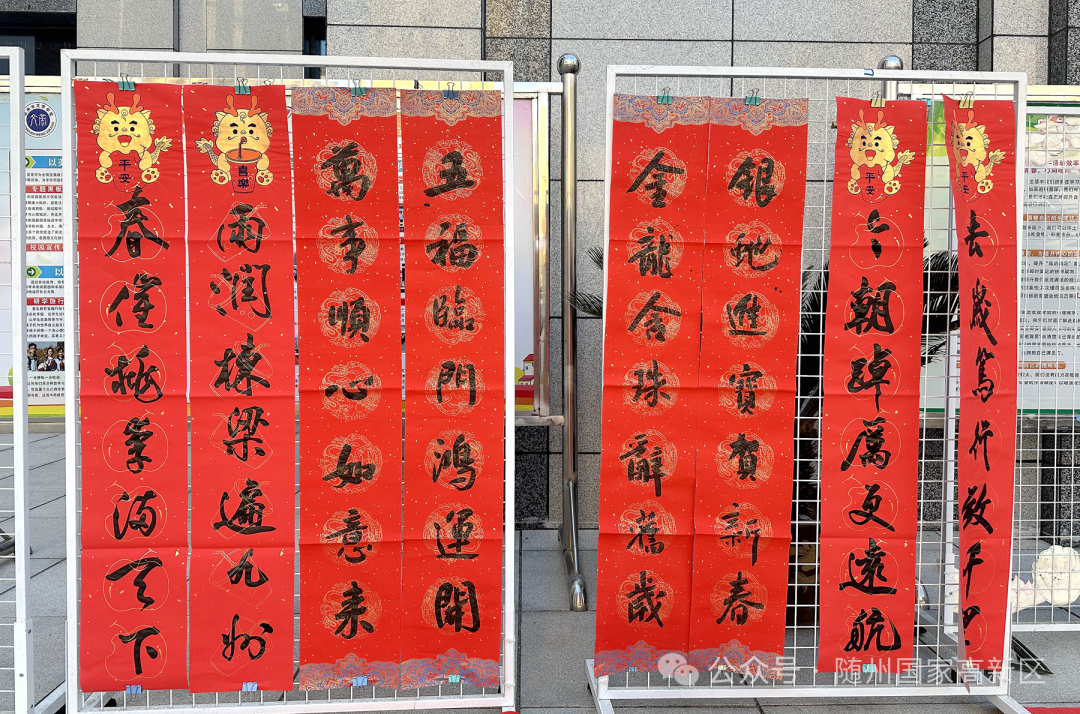 平安
春催桃李满天下
喜樂
雨潤棟梁遍九州
萬事順心如意来
五福臨門鴻運開
金龍含珠辭舊歲
銀地進寶賀新春
平安
今朝踔厲更遠航
平安
去歲篤行致千里
校园宣传
研学旅行
公众号 · 随州国家高新区